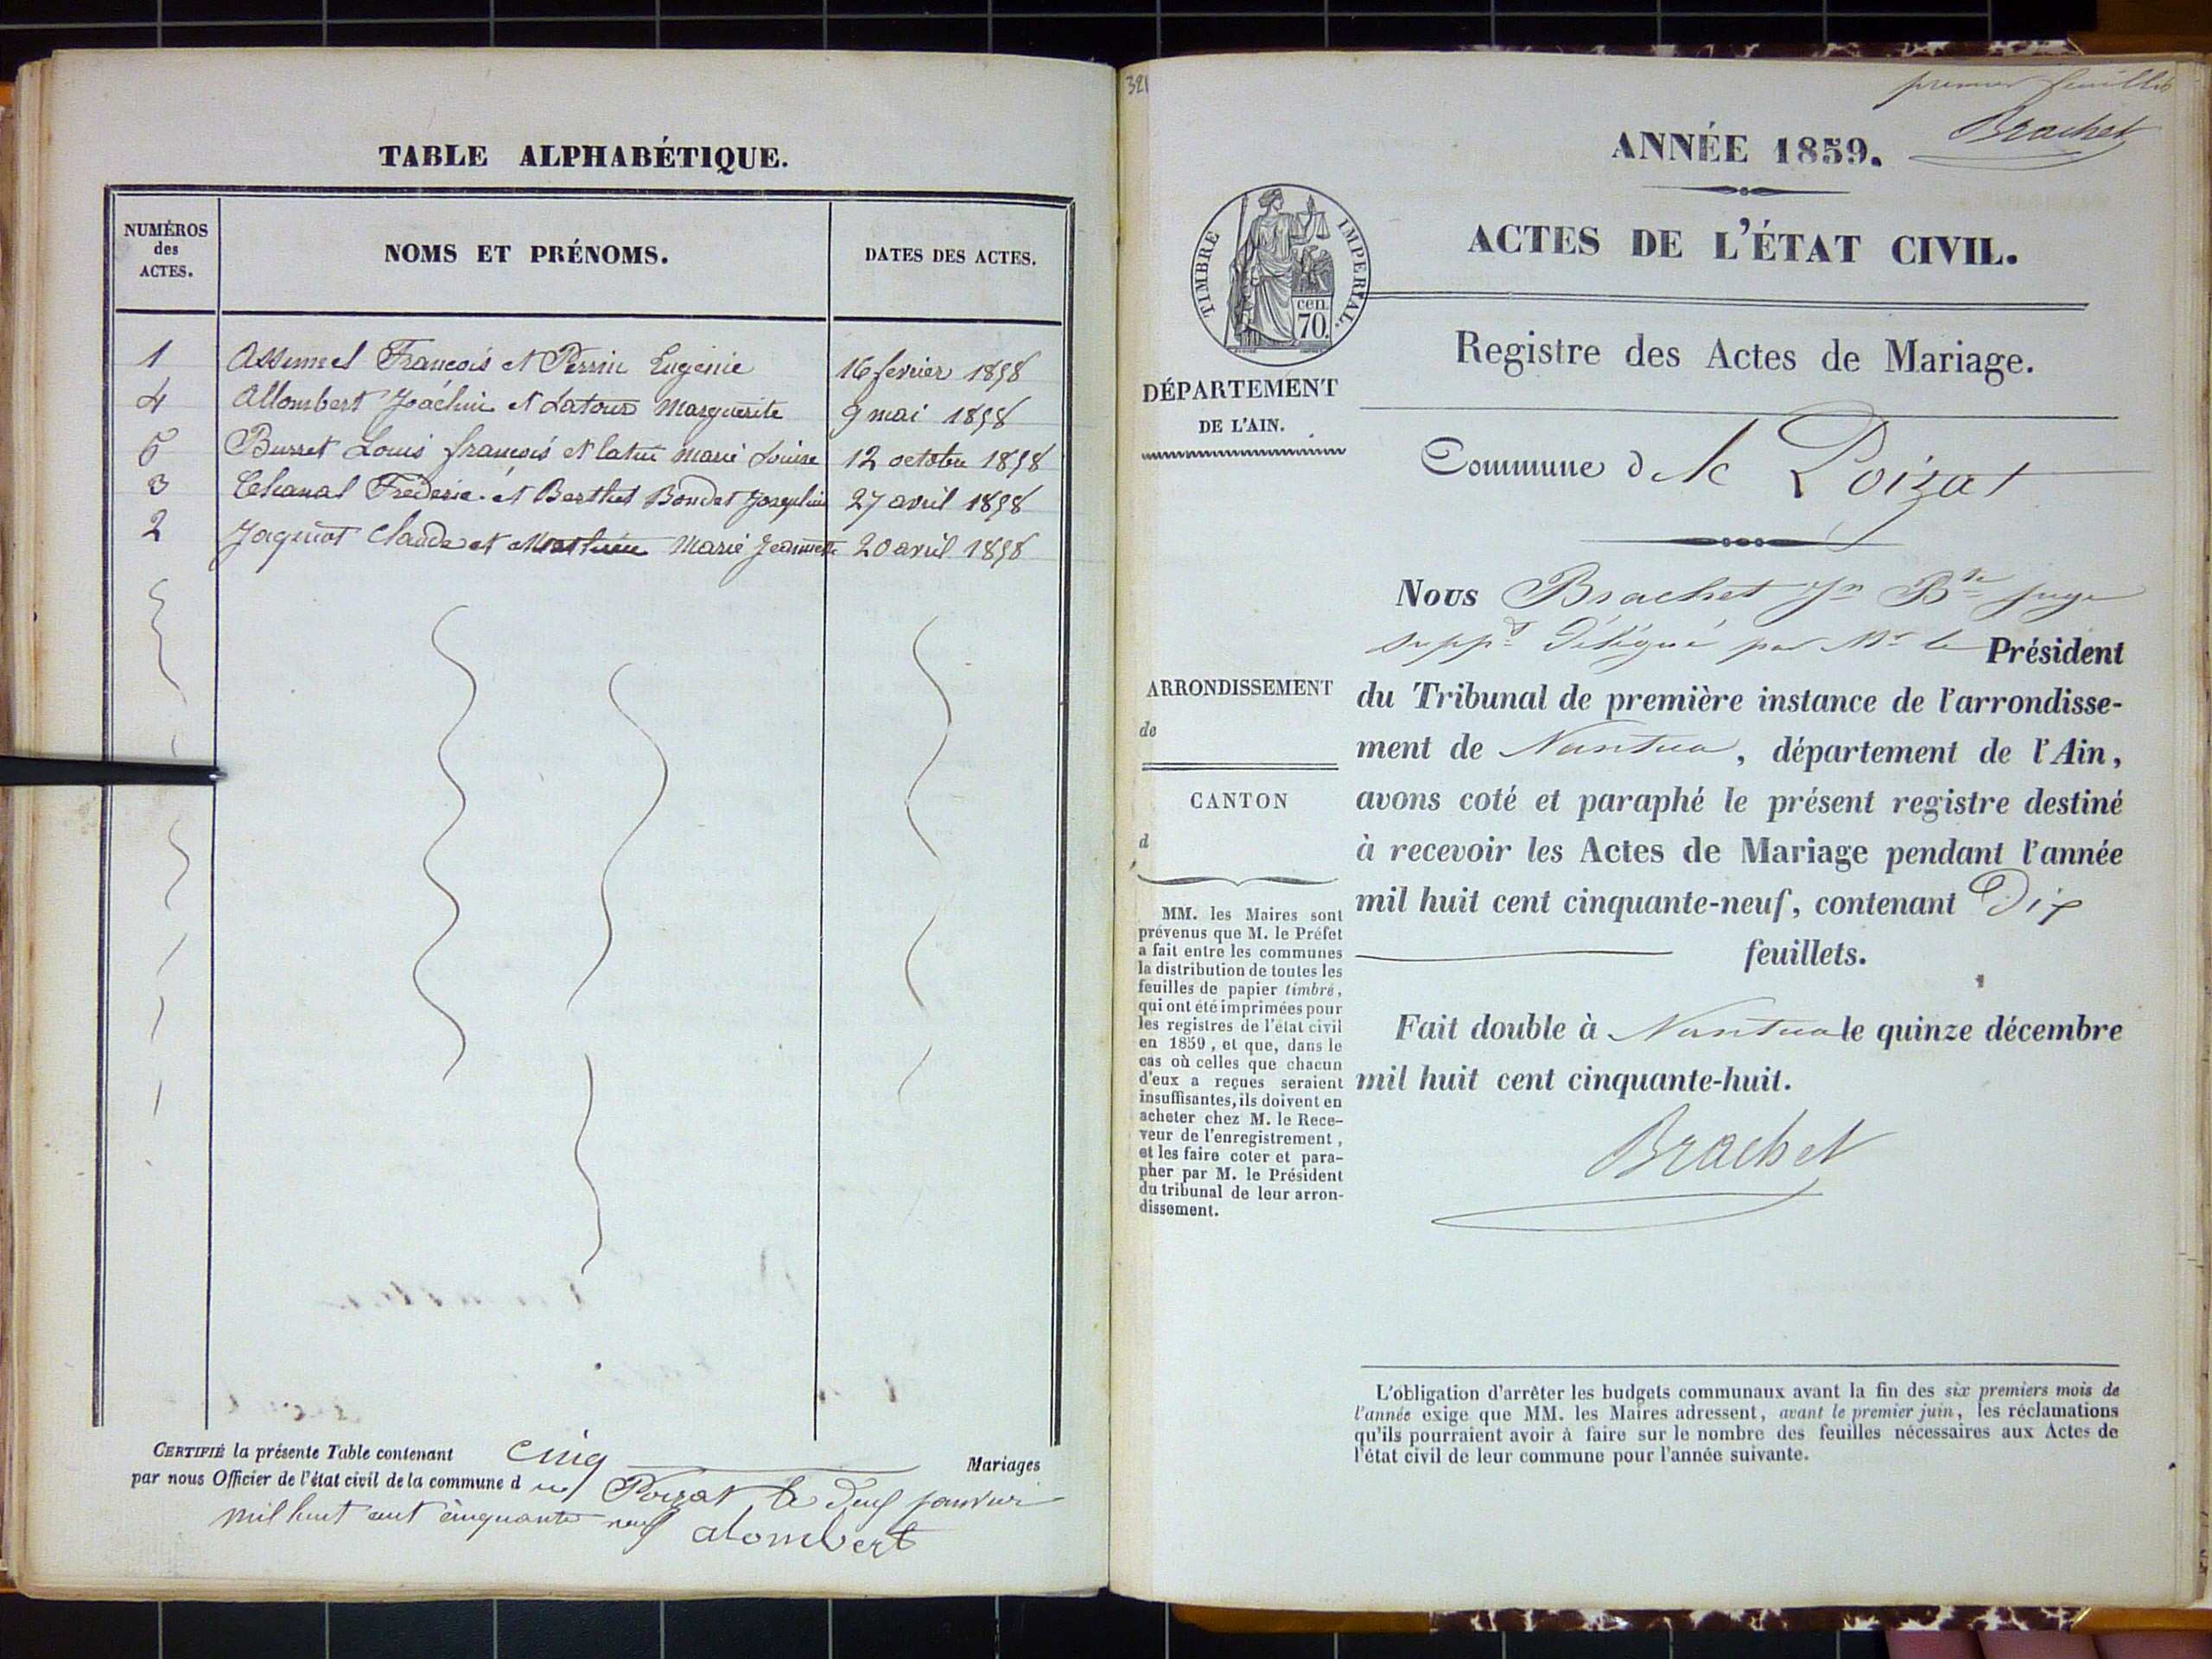 TABLE ALPHABÉTIQUE.
NUMÉROS
des
ACTES.
NOMS ET PRÉNOMS.
DATES DES ACTES.
1 Assumel François et Perrin Eugénie 16 fevrier 1858
4 Allombert Joachim et Latour Marguerite 9 mai 1858
5 Burret Louis françois et marie Louise 12 octobre 1858
3 Chanal Frederic et Berthet Bondet Josephine 27 avril 1858
2 Jaquiot Claude et Mathieu Marie Jeannette 20 avril 1858
CERTIFIÉ la présente Table contenant cinq Mariages
par nous Officier de l'état civil de la commune d u Poizat le deux janvier
mil huit cent cinquante neuf alombert
321
premier feuillet
Brachet
ANNÉE 1859.
TIMBRE IMPERIAL.
cen.
70.
ACTES DE L'ÉTAT CIVIL.
Registre des Actes de Mariage.
DÉPARTEMENT
DE L'AIN.
Commune d le Poizat
Nous Brachet Jn Bte juge
suppt délégué par Mr le Président
ARRONDISSEMENT
de
du Tribunal de première instance de l'arrondisse-
ment de Nantua, département de l'Ain,
CANTON
d
avons coté et paraphé le présent registre destiné
à recevoir les Actes de Mariage pendant l'année
mil huit cent cinquante-neuf, contenant Dix
feuillets.
MM. les Maires sont
prévenus que M. le Préfet
a fait entre les communes
la distribution de toutes les
feuilles de papier timbré,
qui ont été imprimées pour
les registres de l'état civil
en 1859, et que, dans le
cas où celles que chacun
d'eux a reçues seraient
insuffisantes, ils doivent en
acheter chez M. le Rece-
veur de l'enregistrement,
et les faire coter et para-
pher par M. le Président
du tribunal de leur arron-
dissement.
Fait double à Nantua le quinze décembre
mil huit cent cinquante-huit.
Brachet
L'obligation d'arrêter les budgets communaux avant la fin des six premiers mois de
l'année exige que MM. les Maires adressent, avant le premier juin, les réclamations
qu'ils pourraient avoir à faire sur le nombre des feuilles nécessaires aux Actes de
l'état civil de leur commune pour l'année suivante.